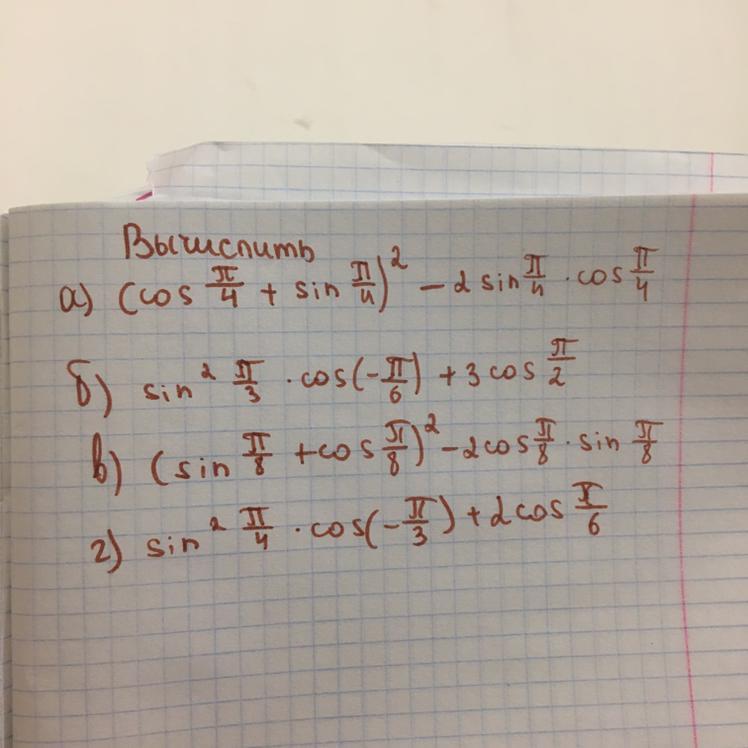 Вычислить
а) (cos π/4 + sin π/4)² − 2 sin π/4 · cos π/4
б) sin² π/3 · cos(−π/6) + 3 cos π/2
в) (sin π/8 + cos π/8)² − 2 cos π/8 · sin π/8
г) sin² π/4 · cos(−π/3) + 2 cos π/6